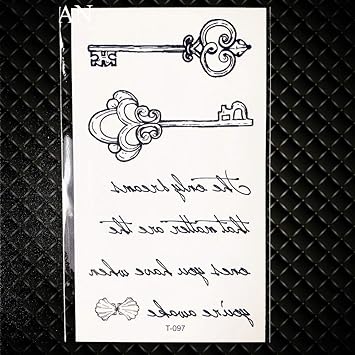 AN
The only dreams
that matter are the
ones you have when
you're awake
T-097